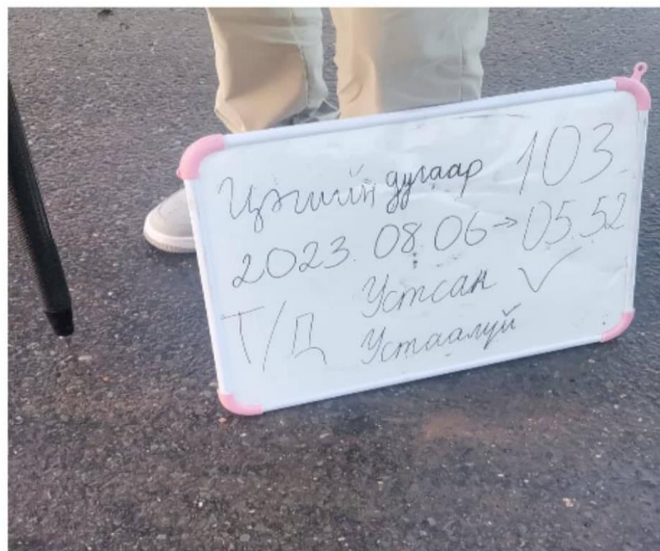 Цэгийн дугаар 103
2023.08.06→05.52
Т/Д Устсан ✓
Устаагүй